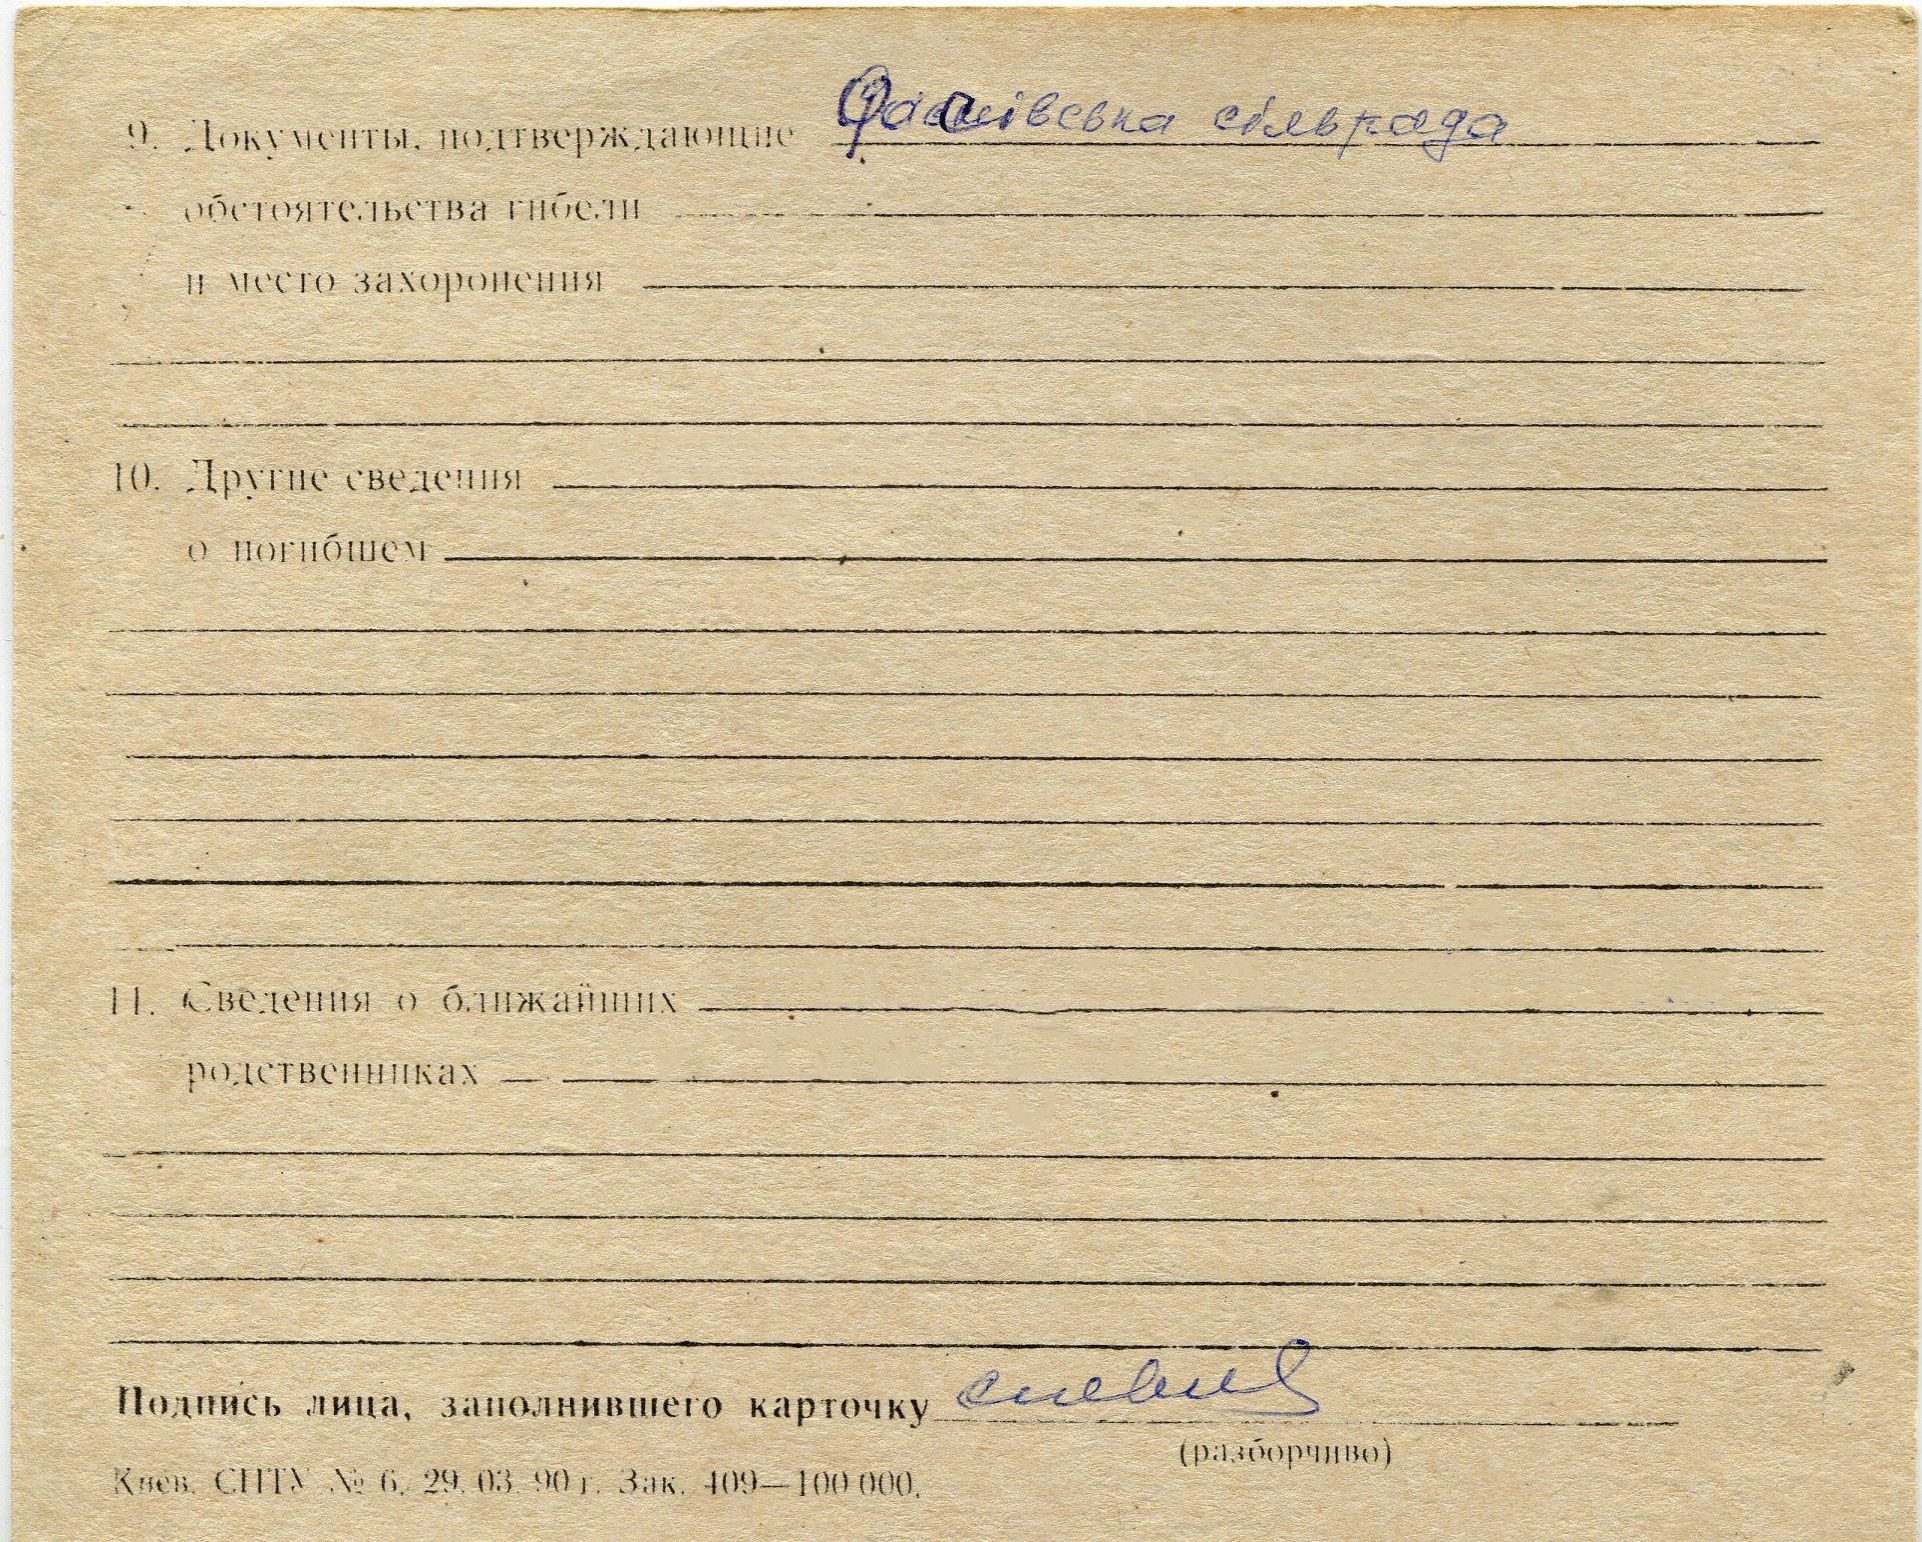 9. Документы, подтверждающие сільрада
обстоятельства гибели
и место захоронения
10. Другие сведения
о погибшем
11. Сведения о ближайших
родственниках
Подпись лица, заполнившего карточку
(разборчиво)
Киев. СПТУ № 6. 29. 03. 90 г. Зак. 409—100 000.